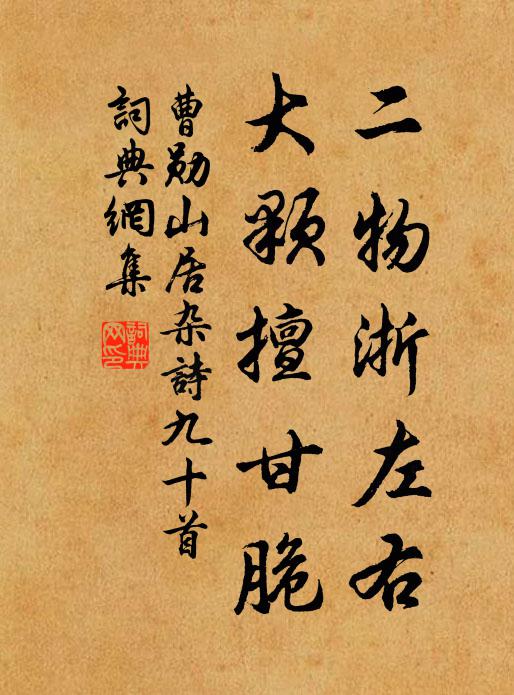 二物浙左右
大顆擅甘脆
曹勛山居杂詩九十首
詞典網集
詞典網印